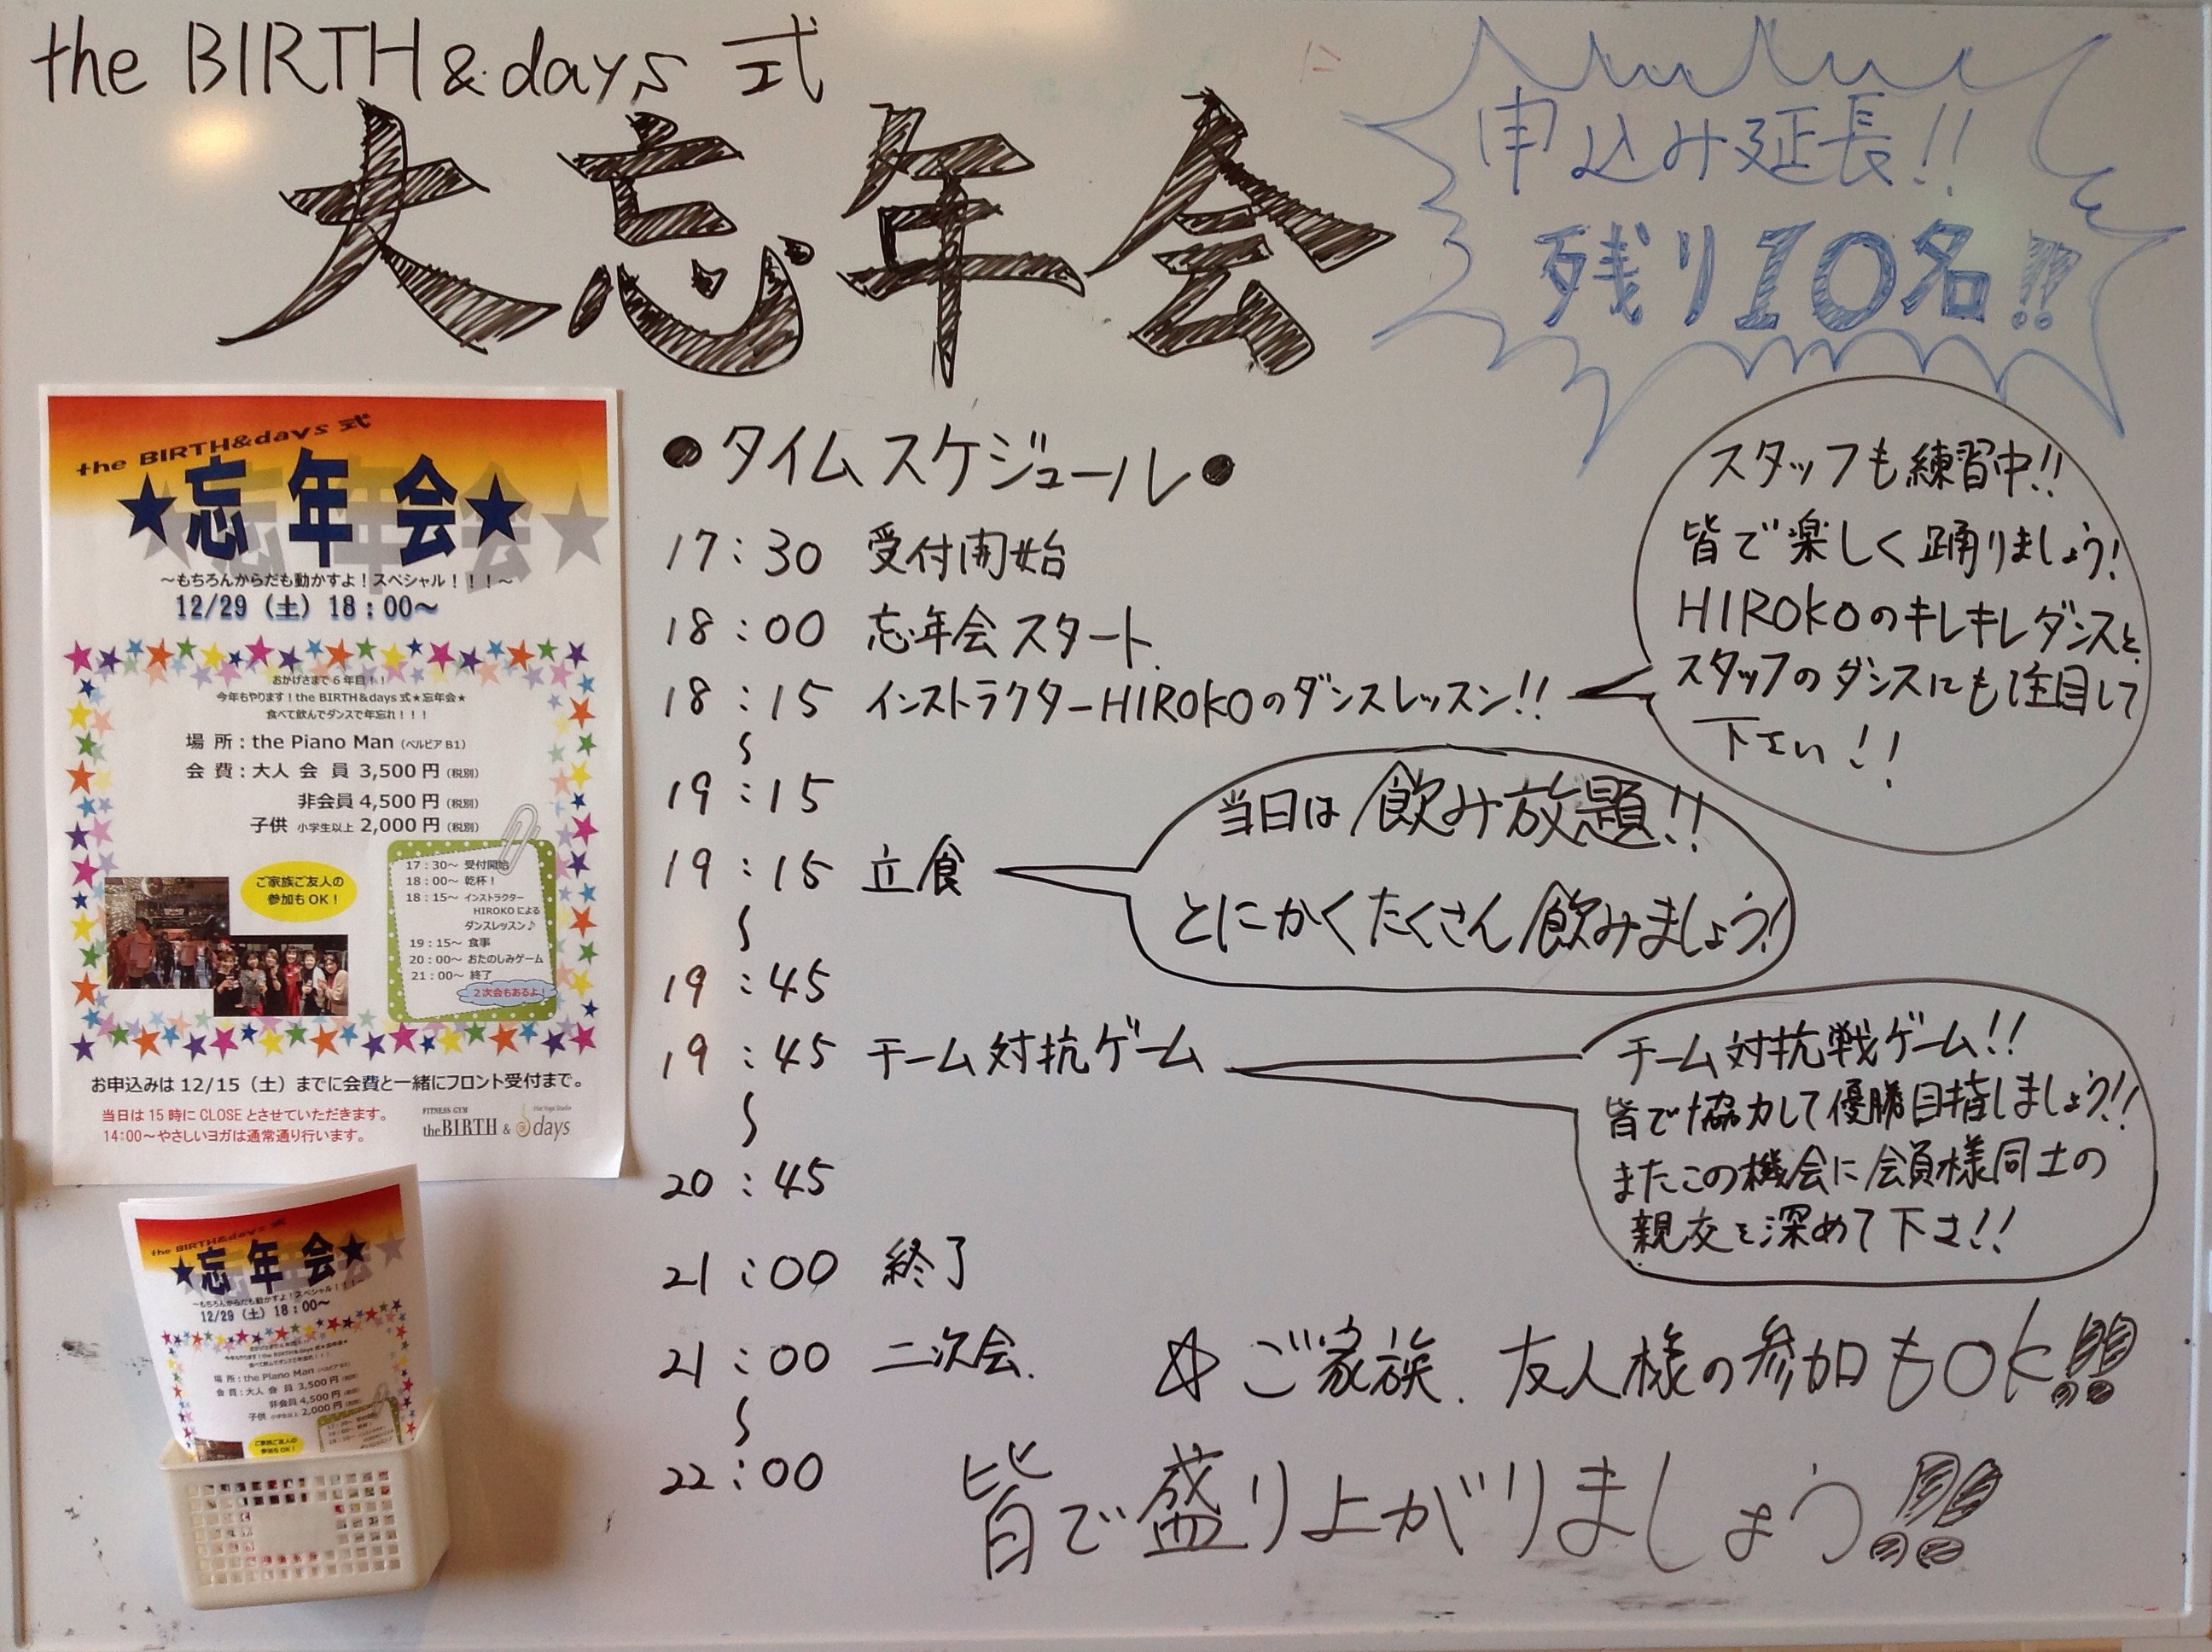 the BIRTH&days 式
大忘年会
申込み延長!!
残り10名!!
the BIRTH&days 式
★忘年会★
～もちろんからだも動かすよ！スペシャル！！！～
12/29（土）18：00～
おかげさまで6年目！！
今年もやります！the BIRTH&days 式★忘年会★
食べて飲んでダンスで年忘れ！！！
場 所：the Piano Man（ベルビア B1）
会 費：大人 会 員 3,500 円（税別）
非会員 4,500 円（税別）
子供 小学生以上 2,000 円（税別）
ご家族ご友人の
参加もOK！
17：30～ 受付開始
18：00～ 乾杯！
18：15～ インストラクター
HIROKO による
ダンスレッスン♪
19：15～ 食事
20：00～ おたのしみゲーム
21：00～ 終了
2次会もあるよ！
お申込みは 12/15（土）までに会費と一緒にフロント受付まで。
当日は 15 時に CLOSE とさせていただきます。
14:00～やさしいヨガは通常通り行います。
FITNESS GYM
theBIRTH & Hot Yoga Studio days
●タイムスケジュール●
17：30 受付開始
18：00 忘年会スタート
18：15 インストラクターHIROKOのダンスレッスン!!
～
19：15
スタッフも練習中!!
皆で楽しく踊りましょう!
HIROKOのキレキレダンスと
スタッフのダンスにも注目して
下さい!!
19：15 立食
～
19：45
当日は飲み放題!!
とにかくたくさん飲みましょう!
19：45 チーム対抗ゲーム
～
20：45
チーム対抗戦ゲーム!!
皆で協力して優勝目指しましょう!!
またこの機会に会員様同士の
親交を深めて下さ!!
21：00 終了
21：00 二次会
～
22：00
☆ご家族、友人様の参加もOK!!
皆で盛り上がりましょう!!
the BIRTH&days 式
★忘年会★
～もちろんからだも動かすよ！スペシャル！！！～
12/29（土）18：00～
おかげさまで6年目！！
今年もやります！the BIRTH&days 式★忘年会★
食べて飲んでダンスで年忘れ！！！
場 所：the Piano Man（ベルビア B1）
会 費：大人 会 員 3,500 円（税別）
非会員 4,500 円（税別）
子供 小学生以上 2,000 円（税別）
ご家族ご友人の
参加もOK！